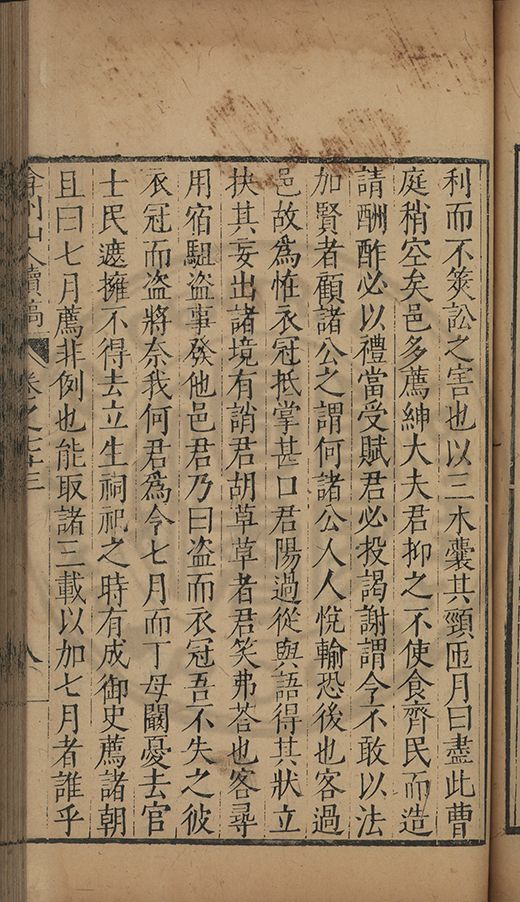 利而不筴訟之害也以三木囊其頸匝月曰盡此曹
庭稍空矣邑多薦紳大夫君抑之不使食齊民而造
請酬酢必以禮當受賦君必投謁謝謂令不敢以法
加賢者顧諸公之謂何諸公人人悅輸恐後也客過
邑故為恠衣冠抵掌甚口君陽過從與語得其狀立
抉其妄出諸境有誚君胡草草者君笑弗荅也客尋
用宿駔盜事發他邑君乃曰盜而衣冠吾不失之彼
衣冠而盜將奈我何君為令七月而丁母闞憂去官
士民遮擁不得去立生祠祀之時有成御史薦諸朝
且曰七月薦非例也能取諸三載以加七月者誰乎
弇州山人續稿 卷之 八